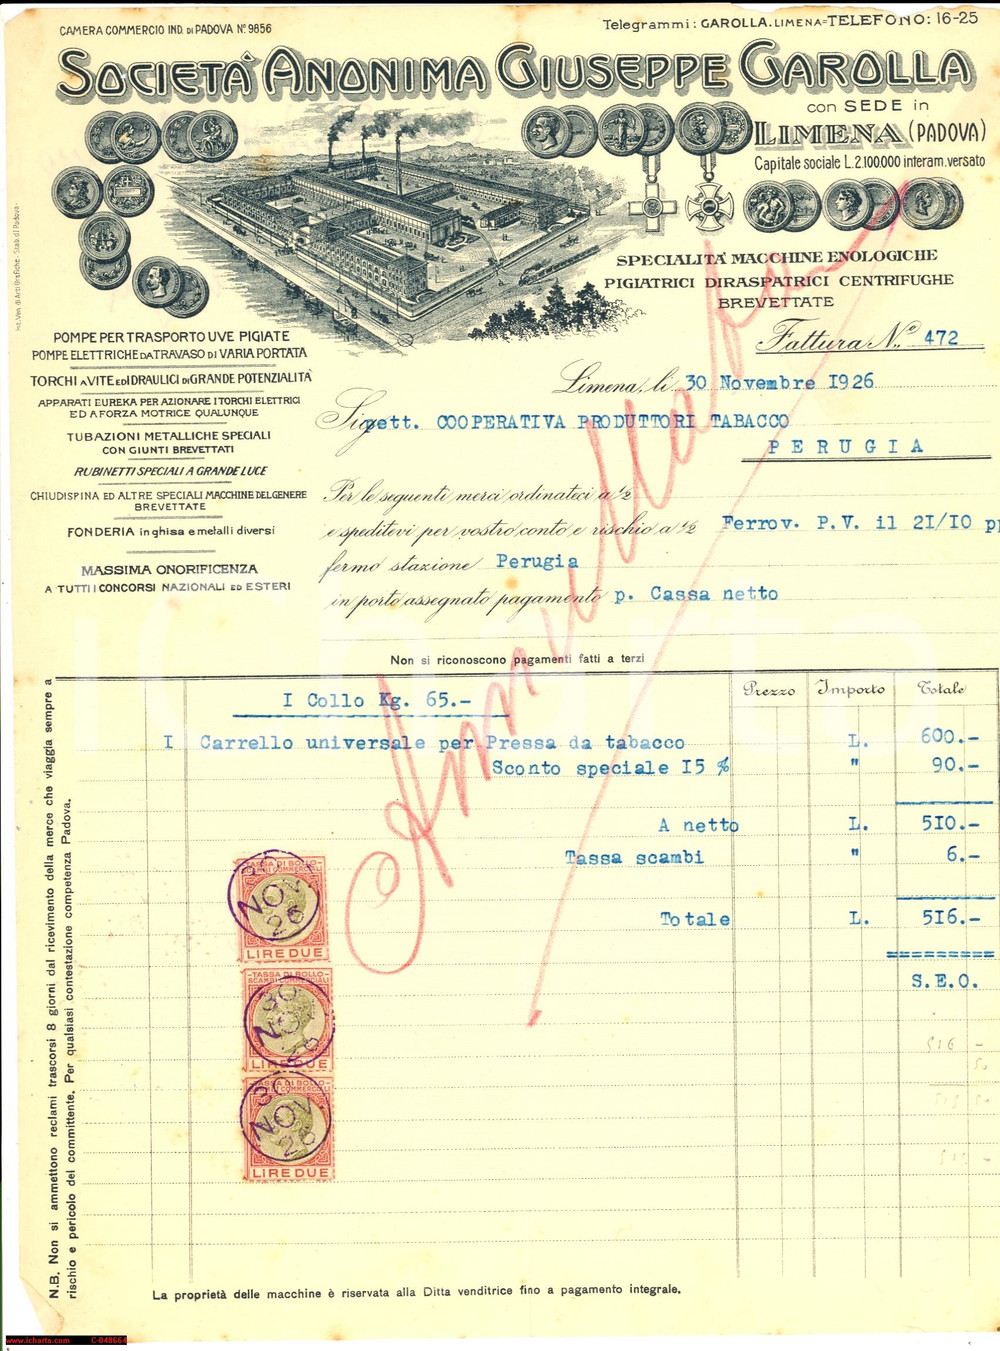 CAMERA COMMERCIO IND. DI PADOVA N° 9856
Telegrammi: GAROLLA. LIMENA=TELEFONO: 16-25
SOCIETÀ ANONIMA GIUSEPPE GAROLLA
con SEDE in
LIMENA (PADOVA)
Capitale sociale L. 2.100.000 interam. versato
SPECIALITÀ MACCHINE ENOLOGICHE
PIGIATRICI DIRASPATRICI CENTRIFUGHE
BREVETTATE
POMPE PER TRASPORTO UVE PIGIATE
POMPE ELETTRICHE DA TRAVASO DI VARIA PORTATA
TORCHI A VITE ED IDRAULICI DI GRANDE POTENZIALITÀ
APPARATI EUREKA PER AZIONARE I TORCHI ELETTRICI
ED A FORZA MOTRICE QUALUNQUE
TUBAZIONI METALLICHE SPECIALI
CON GIUNTI BREVETTATI
RUBINETTI SPECIALI A GRANDE LUCE
CHIUDISPINA ED ALTRE SPECIALI MACCHINE DEL GENERE
BREVETTATE
FONDERIA in ghisa e metalli diversi
MASSIMA ONORIFICENZA
A TUTTI I CONCORSI NAZIONALI ED ESTERI
Fattura N.° 472
Limena, li 30 Novembre 1926
Sig. pett. COOPERATIVA PRODUTTORI TABACCO
PERUGIA
Per le seguenti merci ordinateci a ½
e speditevi per vostro conto e rischio a ½ Ferrov. P.V. il 21/10 pp
fermo stazione Perugia
in porto assegnato pagamento p. Cassa netto
Non si riconoscono pagamenti fatti a terzi
Prezzo Importo Totale
I Collo Kg. 65.-
I Carrello universale per Pressa da tabacco L. 600.-
Sconto speciale 15 % " 90.-
A netto L. 510.-
Tassa scambi " 6.-
Totale L. 516.-
S.E.O.
Annullata
TASSA DI BOLLO
SCAMBI COMMERCIALI
LIRE DUE
30 NOV. 26
TASSA DI BOLLO
SCAMBI COMMERCIALI
LIRE DUE
30 NOV. 26
TASSA DI BOLLO
SCAMBI COMMERCIALI
LIRE DUE
30 NOV. 26
N.B. Non si ammettono reclami trascorsi 8 giorni dal ricevimento della merce che viaggia sempre a
rischio e pericolo del committente. Per qualsiasi contestazione competenza Padova.
La proprietà delle macchine è riservata alla Ditta venditrice fino a pagamento integrale.
www.icharta.com C-048664